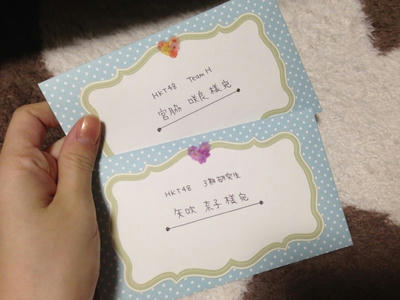 HKT48 Team H
宮脇 咲良 様宛
HKT48 3期研究生
矢吹 奈子 様宛